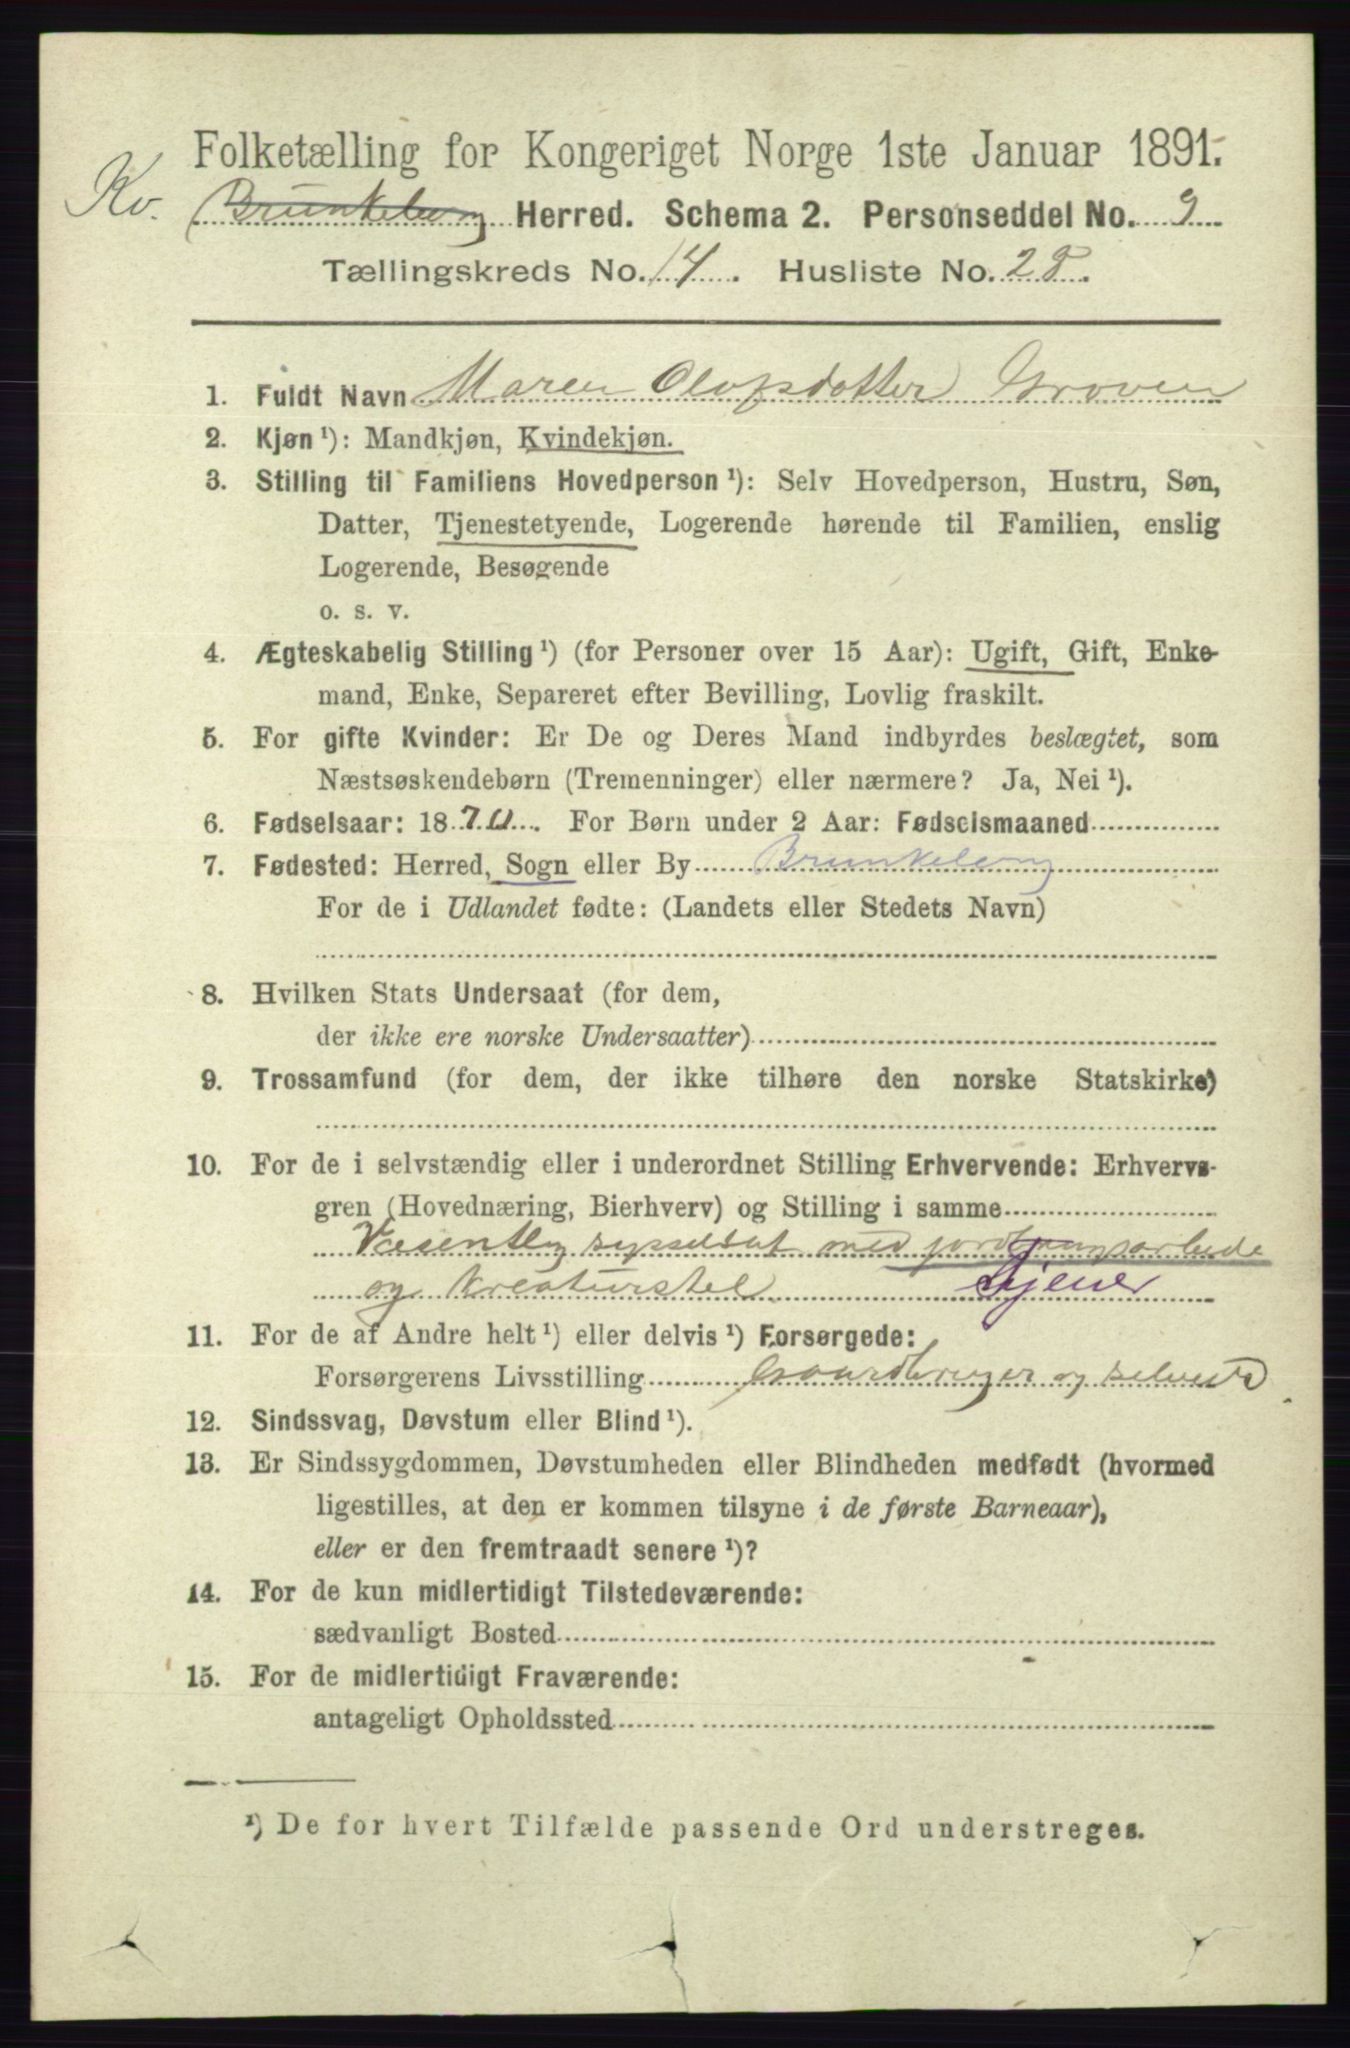 Folketælling for Kongeriget Norge 1ste Januar 1891.
Kv. Brunkeberg Herred. Schema 2. Personseddel No. 9
Tællingskreds No. 14. Husliste No. 28.
1. Fuldt Navn Maren Olafsdatter Groven
2. Kjøn ¹): Mandkjøn, Kvindekjøn.
3. Stilling til Familiens Hovedperson ¹): Selv Hovedperson, Hustru, Søn,
Datter, Tjenestetyende, Logerende hørende til Familien, enslig
Logerende, Besøgende
o. s. v.
4. Ægteskabelig Stilling ¹) (for Personer over 15 Aar): Ugift, Gift, Enke-
mand, Enke, Separeret efter Bevilling, Lovlig fraskilt.
5. For gifte Kvinder: Er De og Deres Mand indbyrdes beslægtet, som
Næstsøskendebørn (Tremenninger) eller nærmere? Ja, Nei ¹).
6. Fødselsaar: 1870. For Børn under 2 Aar: Fødselsmaaned
7. Fødested: Herred, Sogn eller By Brunkeberg
For de i Udlandet fødte: (Landets eller Stedets Navn)
8. Hvilken Stats Undersaat (for dem,
der ikke ere norske Undersaatter)
9. Trossamfund (for dem, der ikke tilhøre den norske Statskirke)
10. For de i selvstændig eller i underordnet Stilling Erhvervende: Erhvervs-
gren (Hovednæring, Bierhverv) og Stilling i samme
Væsentlig sysselsat med jordbrugsarbeide
og kreaturstel. tjener
11. For de af Andre helt ¹) eller delvis ¹) Forsørgede:
Forsørgerens Livsstilling Gaardbruger og selveier
12. Sindssvag, Døvstum eller Blind ¹).
13. Er Sindssygdommen, Døvstumheden eller Blindheden medfødt (hvormed
ligestilles, at den er kommen tilsyne i de første Barneaar),
eller er den fremtraadt senere ¹)?
14. For de kun midlertidigt Tilstedeværende:
sædvanligt Bosted
15. For de midlertidigt Fraværende:
antageligt Opholdssted
¹) De for hvert Tilfælde passende Ord understreges.